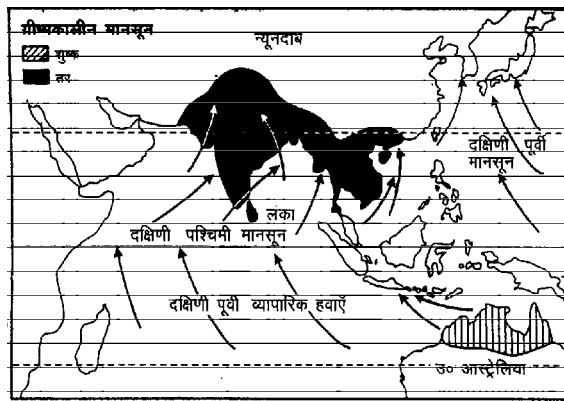 ग्रीष्मकालीन मानसून
शुष्क
तर
न्यूनदाब
दक्षिणी पूर्वी
मानसून
लंका
दक्षिणी पश्चिमी मानसून
दक्षिणी पूर्वी व्यापारिक हवाएँ
उ० आस्ट्रेलिया